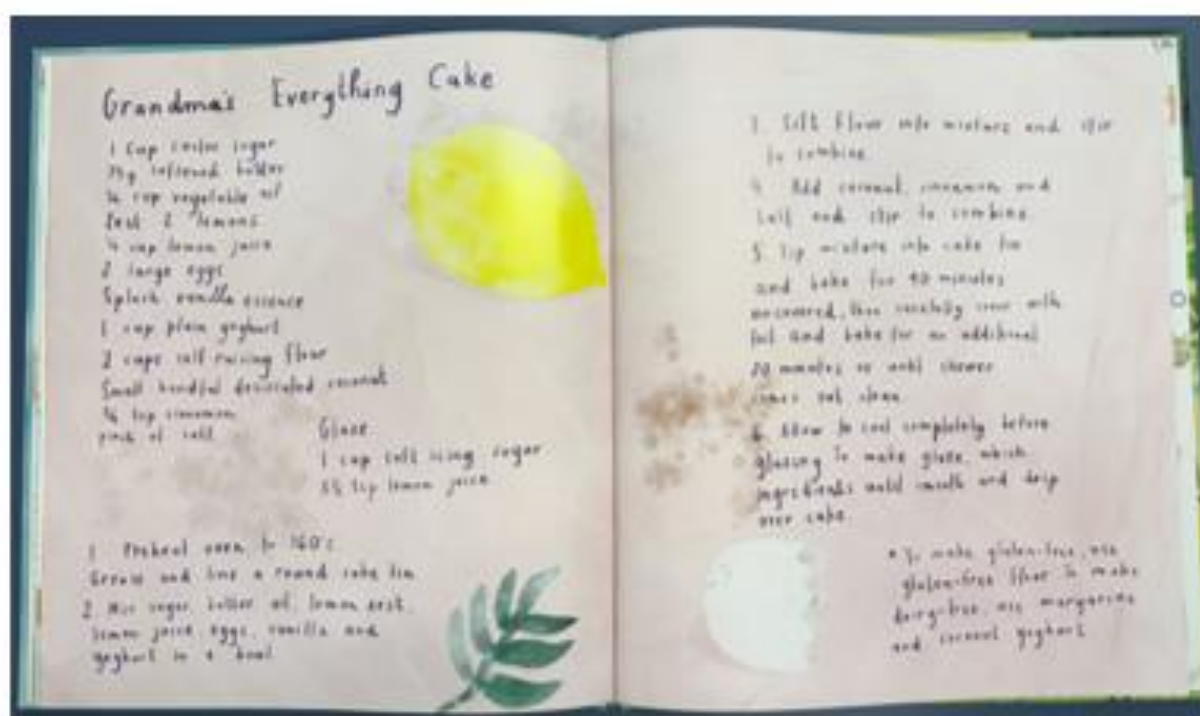 Grandma's Everything Cake
1 cup caster sugar
75g softened butter
¼ cup vegetable oil
Zest 2 lemons
¼ cup lemon juice
2 large eggs
Splash vanilla essence
1 cup plain yoghurt
2 cups self-raising flour
Small handful desiccated coconut
tsp cinnamon
pinch of salt
Glaze
1 cup soft icing sugar
tsp lemon juice
1. Preheat oven to 160°c
Grease and line a round cake tin
2. Mix sugar, butter, oil, lemon zest,
lemon juice, eggs, vanilla and
yoghurt in a bowl
3. Sift flour into mixture and stir
to combine
4. Add coconut, cinnamon and
salt and stir to combine
5. Tip mixture into cake tin
and bake for 40 minutes
uncovered, then carefully cover with
foil and bake for an additional
20 minutes or until skewer
comes out clean
6. Allow to cool completely before
glazing. To make glaze, whisk
ingredients until smooth and drip
over cake.
* To make gluten-free, use
gluten-free flour. To make
dairy-free, use margarine
and coconut yoghurt